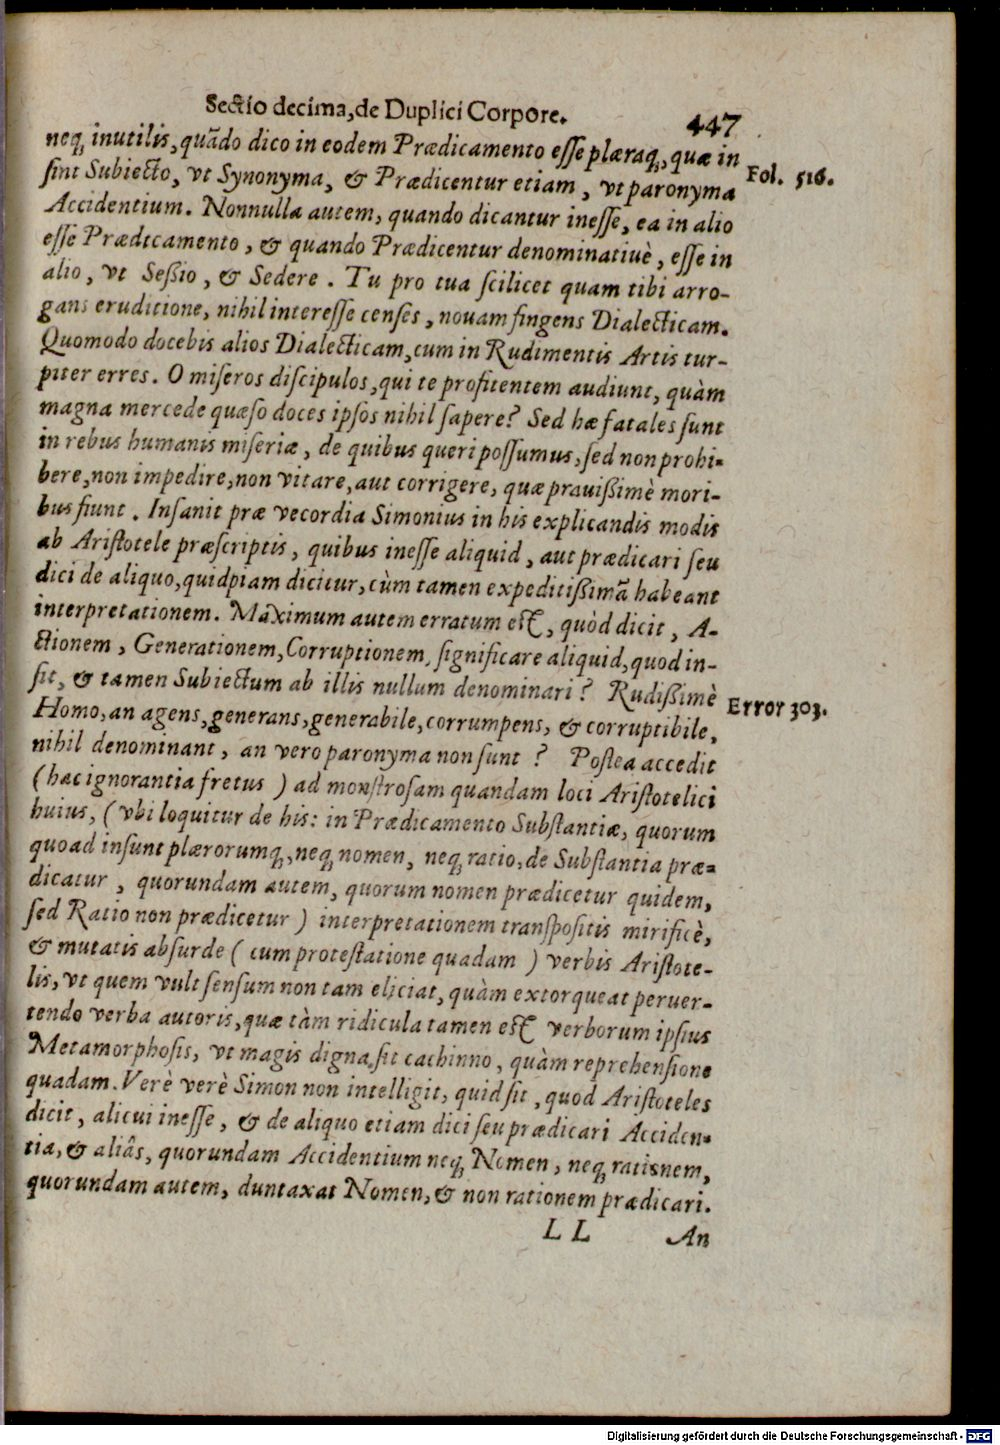 Sectio decima, de Duplici Corpore. 447
neq; inutilis, quãdo dico in eodem Prædicamento eſſe plæraq;, quæ in
ſint Subiecto, vt Synonyma, & Prædicentur etiam, vt paronyma Fol. 516.
Accidentium. Nonnulla autem, quando dicantur ineſſe, ea in alio
eſſe Prædicamento, & quando Prædicentur denominatiuè, eſſe in
alio, vt Seßio, & Sedere. Tu pro tua ſcilicet quam tibi arro-
gans eruditione, nihil intereſſe cenſes, nouam fingens Dialecticam.
Quomodo docebis alios Dialecticam, cum in Rudimentis Artis tur-
piter erres. O miſeros diſcipulos, qui te profitentem audiunt, quàm
magna mercede quæſo doces ipſos nihil ſapere? Sed hæ fatales ſunt
in rebus humanis miſeriæ, de quibus queri poſſumus, ſed non prohi-
bere, non impedire, non vitare, aut corrigere, quæ prauißimè mori-
bus fiunt. Inſanit præ vecordia Simonius in his explicandis modis
ab Ariſtotele præſcriptis, quibus ineſſe aliquid, aut prædicari ſeu
dici de aliquo, quidpiam dicitur, cùm tamen expeditißimã habeant
interpretationem. Maximum autem erratum eſt, quòd dicit, A-
ctionem, Generationem, Corruptionem, ſignificare aliquid, quod in-
ſit, & tamen Subiectum ab illis nullum denominari? Rudißimè
Homo, an agens, generans, generabile, corrumpens, & corruptibile, Error 303.
nihil denominant, an vero paronyma non ſunt? Poſtea accedit
(hac ignorantia fretus) ad monſtroſam quandam loci Ariſtotelici
huius, (vbi loquitur de his: in Prædicamento Subſtantiæ, quorum
quoad inſunt plærorumq;, neq; nomen, neq; ratio, de Subſtantia præ-
dicatur, quorundam autem, quorum nomen prædicetur quidem,
ſed Ratio non prædicetur) interpretationem tranſpoſitis mirificè,
& mutatis abſurde (cum proteſtatione quadam) verbis Ariſtote-
lis, vt quem vult ſenſum non tam eliciat, quàm extorqueat peruer-
tendo verba autoris, quæ tàm ridicula tamen eſt verborum ipſius
Metamorphoſis, vt magis digna ſit cachinno, quàm reprehenſione
quadam. Verè verè Simon non intelligit, quid ſit, quod Ariſtoteles
dicit, alicui ineſſe, & de aliquo etiam dici ſeu prædicari Acciden-
tia, & aliâs, quorundam Accidentium neq; Nomen, neq; rationem,
quorundam autem, duntaxat Nomen, & non rationem prædicari.
LL An
Digitalisierung gefördert durch die Deutsche Forschungsgemeinschaft - DFG